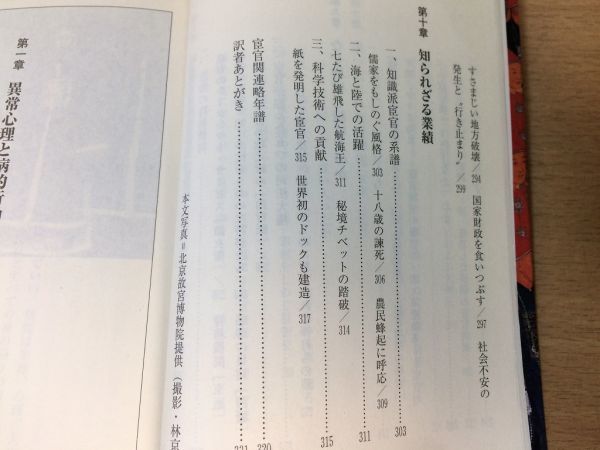 すさまじい地方破壊/294 国家財政を食いつぶす/297 社会不安の
発生と〝行き止まり〟/299
第十章 知られざる業績
一、知識派宦官の系譜……303
儒家をもしのぐ風格/303 十八歳の諫死/306 農民蜂起に呼応/309
二、海と陸での活躍……311
七たび雄飛した航海王/311 秘境チベットの踏破/314
三、科学技術への貢献……315
紙を発明した宦官/315 世界初のドックも建造/317
宦官関連略年譜……320
訳者あとがき……321
本文写真=北京故宮博物院提供(撮影・林京
第一章 異常心理と病的